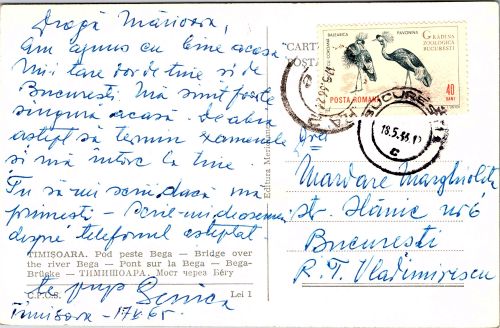 Dragă Mărioara,
Am ajuns cu bine acasă
Mi-i tare dor de tine și de
București. Mă simt foarte
singură acasă. De abia
aștept să termin examenele
și să mă întorc la tine
Tu să-mi scrii dacă mă
primești - Scrie-mi deasemeni
despre telefonul așteptat
TIMIȘOARA. Pod peste Bega — Bridge over
the river Bega — Pont sur la Bega — Bega-
Brücke — ТИМИШОАРА. Мост через Бегу
C.P.C.S. Lei 1
te pup
Timișoara - 17.V.65.
Editura Meridiane
CARTE
POSTA
BALEARICA
PAVONINA
GRĂDINA
ZOOLOGICĂ
BUCUREȘTI
POSTA ROMÂNĂ
40
BANI
BUCUREȘTI
18.5.65.
C
Mardare Marghiolița
str. Slănic nr 6
București
R. T. Vladimirescu